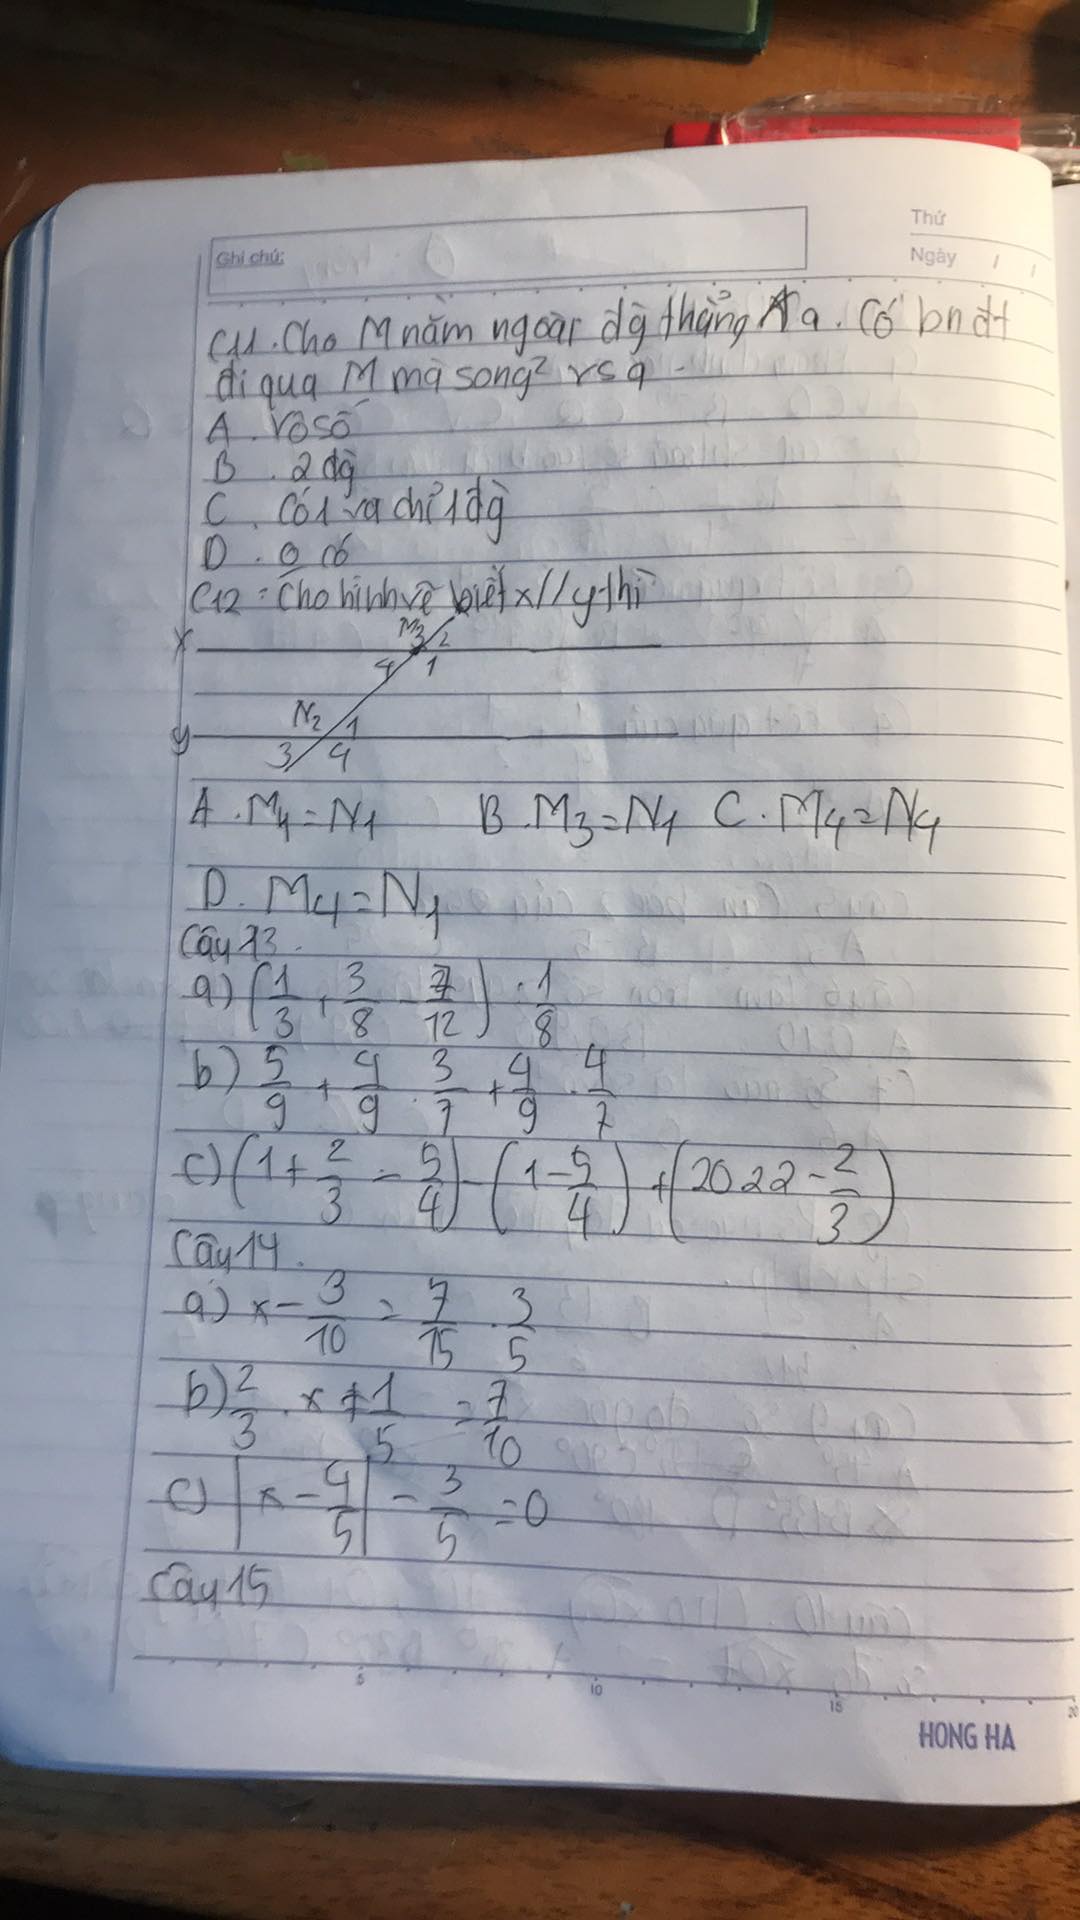 Thứ
Ghi chú:
Ngày / /
C11. Cho M nằm ngoài đg thẳng a. Có bn đt
đi qua M mà song² vs a
A. Vô số
B. 2 đg
C. Có 1 va chỉ 1 đg
D. 0 có
C12: Cho hình vẽ biết x//y thì
M3 2
x
4 1
N2 1
y
3 4
A. M4=N1 B. M3=N1 C. M4=N4
D. M4=N1
Câu 13.
a) (1/3 + 3/8 - 7/12) : 1/8
b) 5/9 + 4/9 . 3/7 + 4/9 . 4/7
c) (1+2/3 - 5/4) - (1-5/4) + (2022-2/3)
Câu 14.
a) x - 3/10 = 7/15 . 3/5
b) 2/3 . x + 1/5 = 7/10
c) |x - 4/5| - 3/5 = 0
Câu 15
5 10 15 20
HONG HA